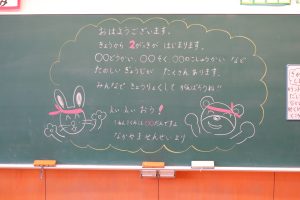 おはようございます。
きょうから2がっきが はじまります。
〇〇どうかい、〇〇そく、〇〇のこしょうかい など
たのしい ぎょうじが たくさん あります。
みんなで きょうりょくして がんばろうね!!
えい えい おう!
なかやま せんせい より